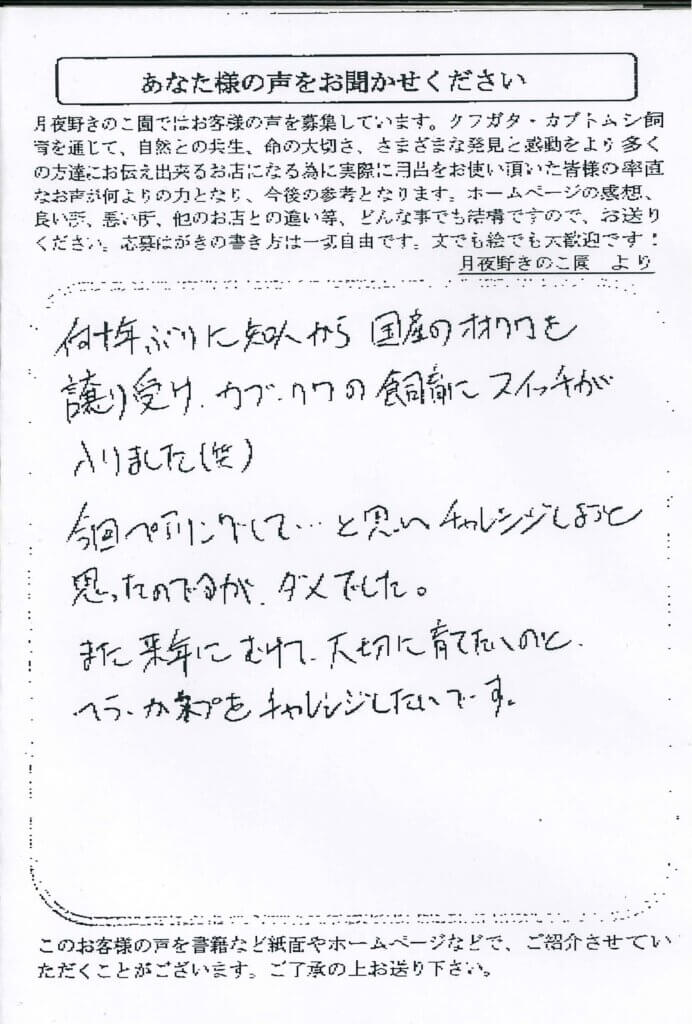 あなた様の声をお聞かせください
月夜野きのこ園ではお客様の声を募集しています。クワガタ・カブトムシ飼
育を通じて、自然との共生、命の大切さ、さまざまな発見と感動をより多く
の方達にお伝え出来るお店になる為に実際に用品をお使い頂いた皆様の率直
なお声が何よりの力となり、今後の参考となります。ホームページの感想、
良い所、悪い所、他のお店との違い等、どんな事でも結構ですので、お送り
ください。応募はがきの書き方は一切自由です。文でも絵でも大歓迎です！
月夜野きのこ園 より
何十年ぶりに知人から国産のオオクワを
譲り受け、カブ、クワの飼育にスイッチが
入りました(笑)
今回ペアリングして…と思いチャレンジしようと
思ったのですが、ダメでした。
また来年にむけて、大切に育てたいのと、
ヘラ、をチャレンジしたいです。
このお客様の声を書籍など紙面やホームページなどで、ご紹介させてい
ただくことがございます。ご了承の上お送り下さい。